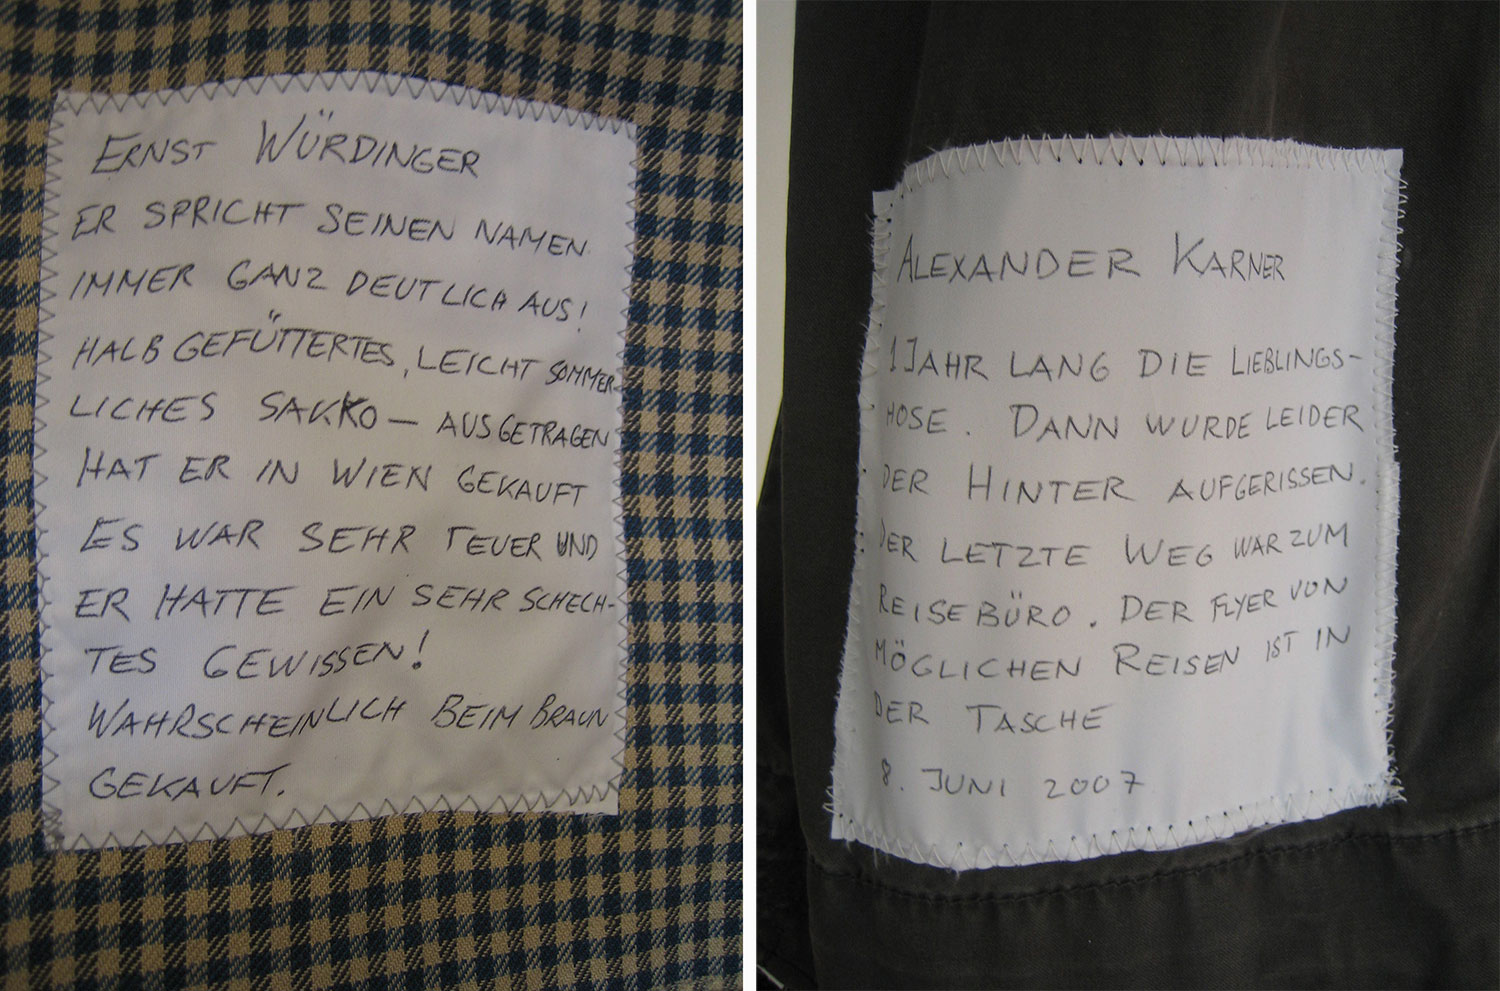 ERNST WÜRDINGER
ER SPRICHT SEINEN NAMEN
IMMER GANZ DEUTLICH AUS!
HALB GEFÜTTERTES, LEICHT SOMMER-
LICHES SAKKO — AUSGETRAGEN
HAT ER IN WIEN GEKAUFT
ES WAR SEHR TEUER UND
ER HATTE EIN SEHR SCHECH-
TES GEWISSEN!
WAHRSCHEINLICH BEIM BRAUN
GEKAUFT.
ALEXANDER KARNER
1 JAHR LANG DIE LIEBLINGS-
HOSE. DANN WURDE LEIDER
DER HINTER AUFGERISSEN.
DER LETZTE WEG WAR ZUM
REISEBÜRO. DER FLYER VON
MÖGLICHEN REISEN IST IN
DER TASCHE
8. JUNI 2007